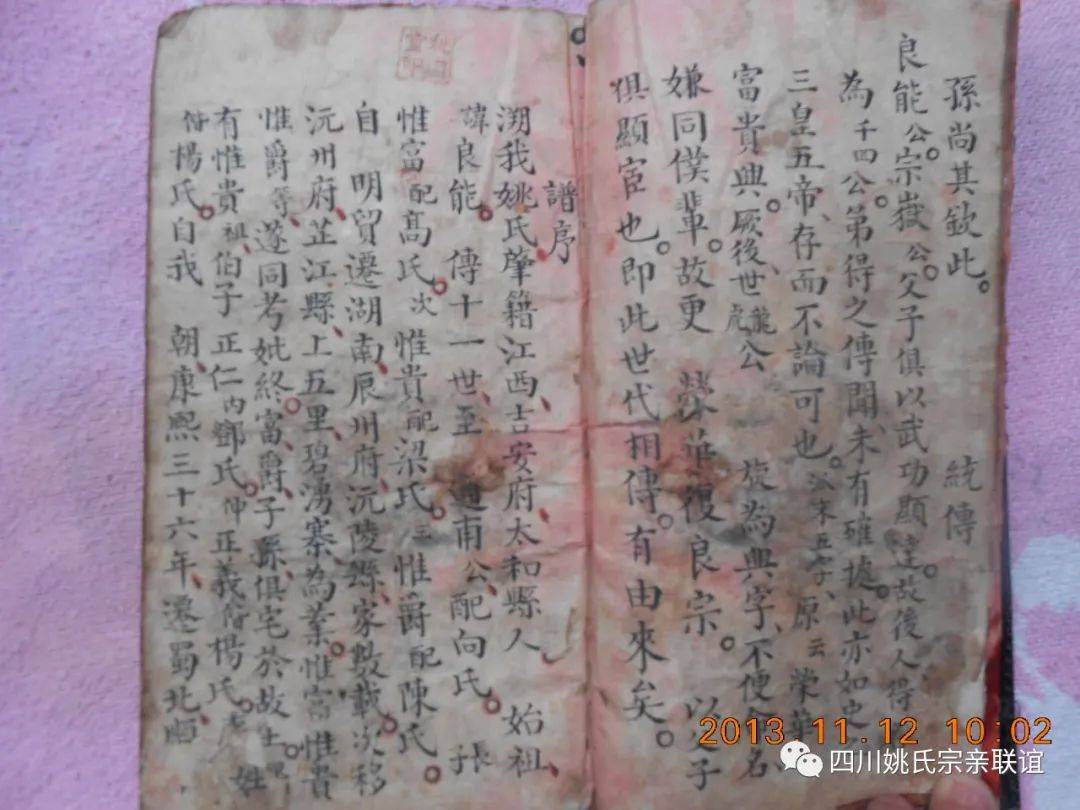 孫尚其欽此。 統傳
良能公。宗嶽公。父子俱以武功顯達。故後人得
為千四公。第得之傳聞、未有確據、此亦如史
三皇五帝、存而不論可也。 宋五子、原云 榮華
富貴興。厥後世龍虎公 旋為興字、不便 名
嫌同僕輩。故更 榮華復良宗。以父子
俱顯宦也。即此世代相傳。有由來矣。
譜序
溯我姚氏肇籍江西、吉安府太和縣人、始祖
諱良能。傳十一世、至 甫公配向氏。長
惟富配高氏。次 惟貴配梁氏。三 惟爵配陳氏。
自 明貿遷湖南、辰州府、沅陵縣、家數載、次移
沅州府、芷江縣、上五里、碧湧寨、為業。惟富惟貴
惟爵等、遂同考妣終。富、爵、子孫、俱宅於故土。 姓
有惟貴祖、伯子正仁內鄧氏。仲正義偕楊氏。
偕楊氏。自我 朝、康熙三十六年、遷蜀北、順
2013.11.12 10:02
四川姚氏宗亲联谊